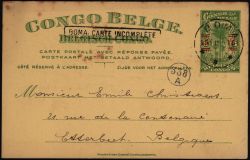 CONGO BELGE.
ROMA. CARTE INCOMPLETE
BELGISCH CONGO.
CARTE POSTALE AVEC RÉPONSE PAYÉE.
POSTKAART MET BETAALD ANTWOORD.
CÔTÉ RÉSERVÉ À L'ADRESSE.
ZIJDE VOOR HET ADRES
538
A
Monsieur Emile Christiaens
rue de la Centenaire
Etterbeek
Belgique